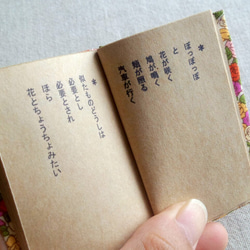 *
ぽっぽっぽ
と
花が咲く
鳩が鳴く
顔が照る
汽車が行く
*
似たものどうしは
必要とし
必要とされ
ほら
花とちょうちょみたい